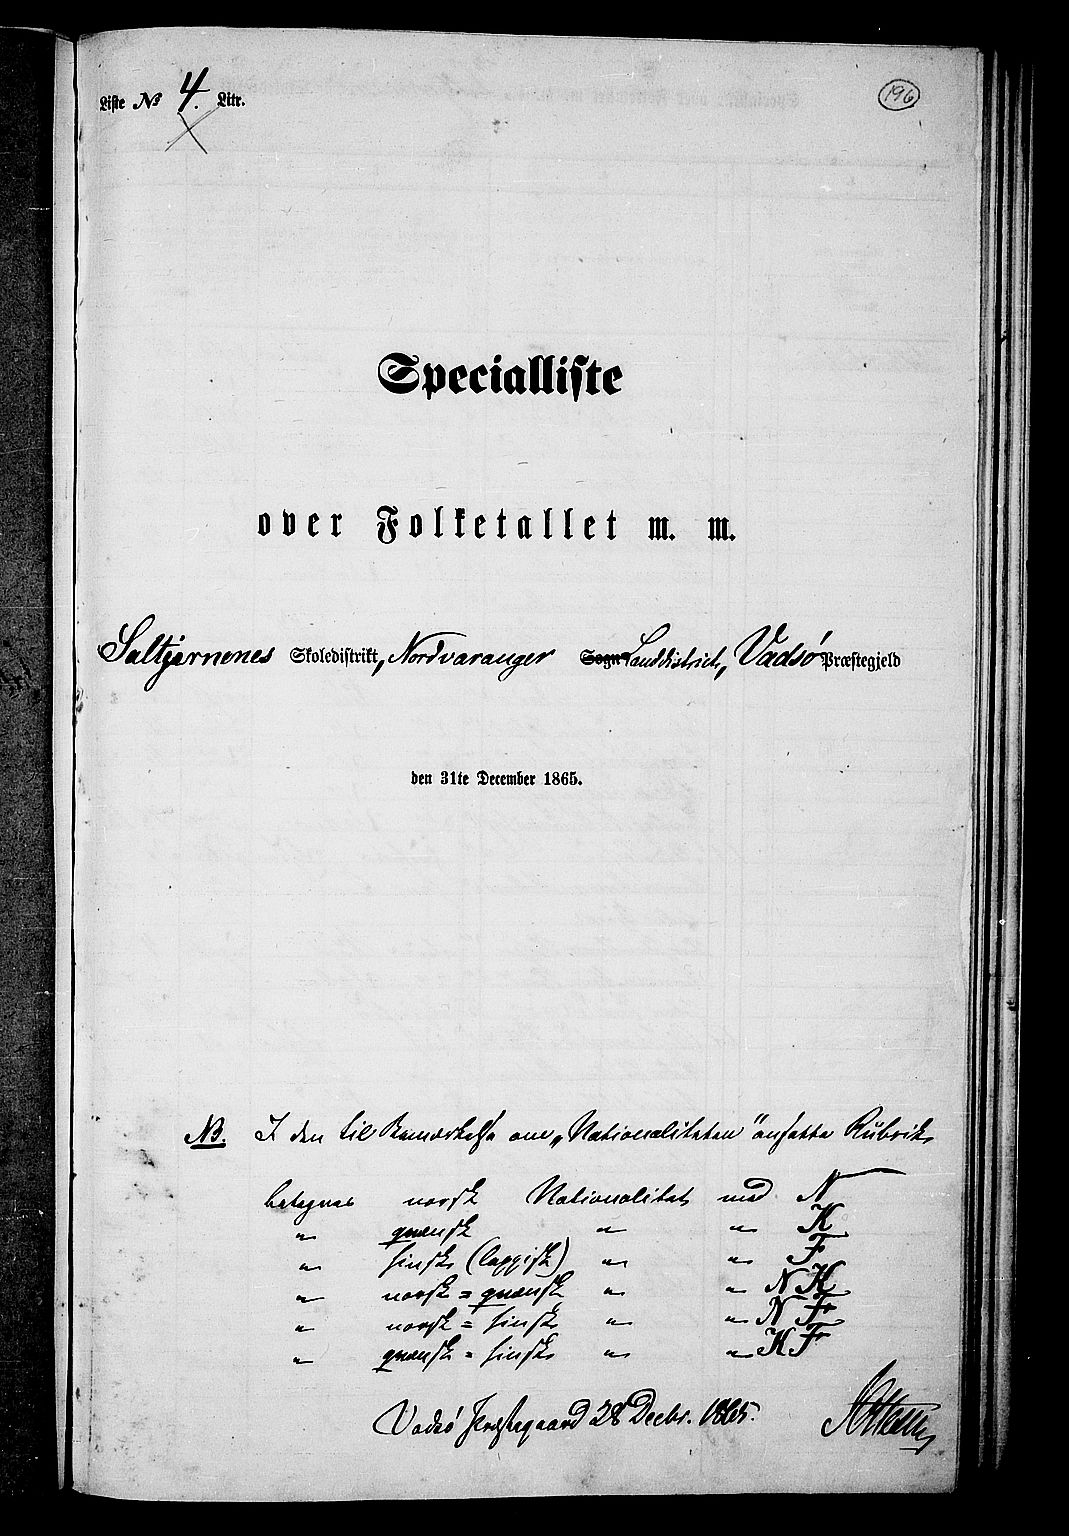 Liste No 4. Litr.
196
Specialliste
over Folketallet m. m.
Saltjærnenes Skoledistrikt, Nordvaranger Sogn Landdistrict, Vadsø Præstegjeld
den 31te December 1865.
NB. I den til Bemærkelse om „Nationaliteten" ansatte Rubrik
betegnes norsk Nationalitet med N
" qvænsk " " K
" finsk (lappisk) " " F
" norsk = qvænsk " " N K
" norsk = finsk " " N F
" qvænsk = finsk " " K F
Vadsø Præstegaard 28 Decbr. 1865.